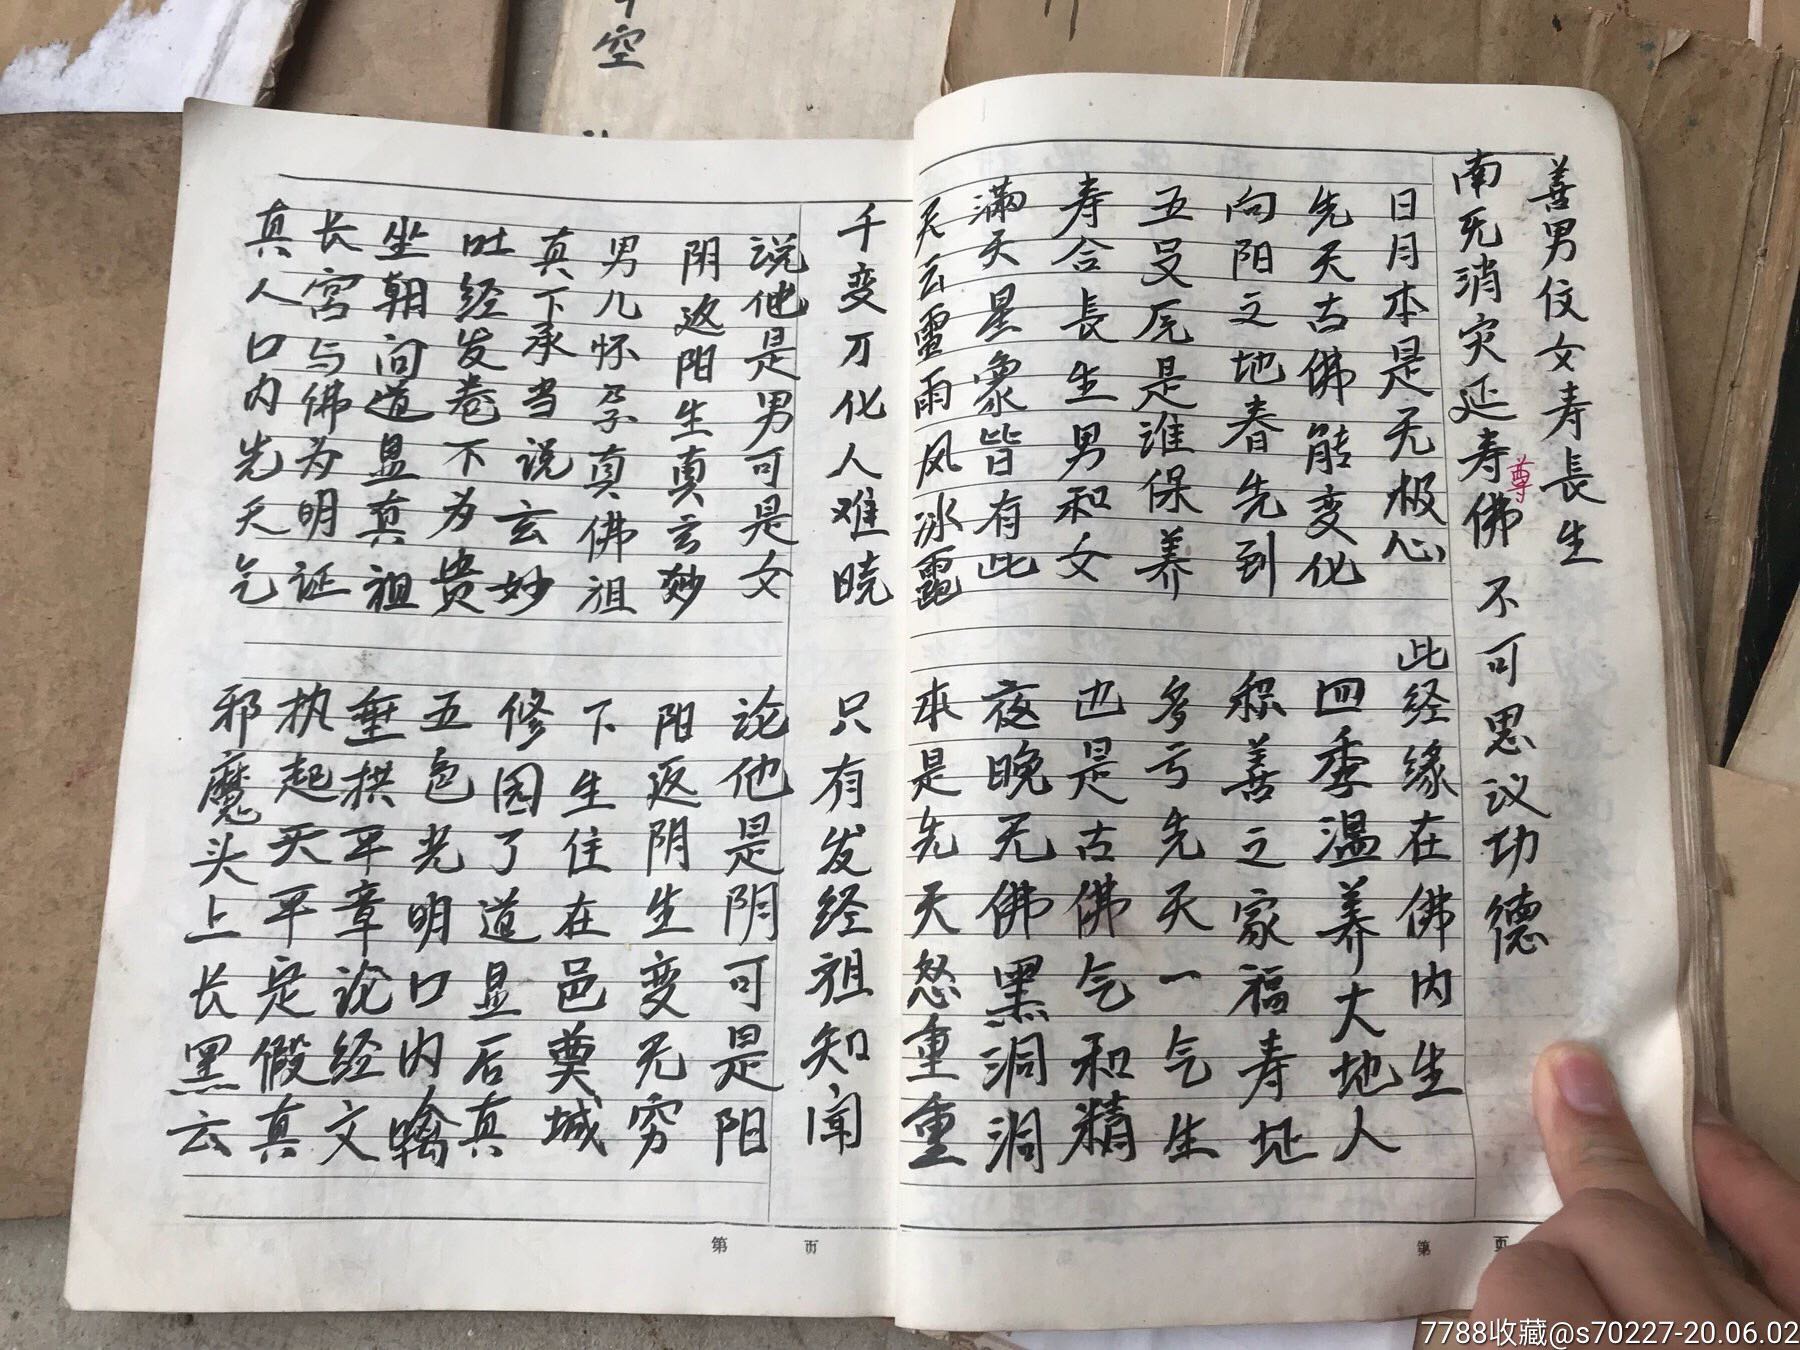 善男伩女寿長生
南无消灾延寿尊佛 不可思议功德
日月本是无极心 此经缘在佛内生
先天古佛能变化 四季温养大地人
向阳之地春先到 积善之家福寿址
五旻凥是谁保养 多亏先天一气生
寿合長生男和女 也是古佛气和精
满天星象皆有此 夜晚无佛黑洞洞
天云雷雨风冰雹 本是先天怒重重
千变万化人难晓 只有发经祖知闻
说他是男可是女 论他是阴可是阳
阴返阳生真玄妙 阳返阴生变无穷
男儿怀孕真佛祖 下生住在邑奠城
真下承当说玄妙 修园了道显后真
吐经发卷下为贵 五色光明口内噙
坐朝问道显真祖 垂拱平章论经文
长宫与佛为明证 执起天平定假真
真人口内先天气 邪魔头上长黑云
第 页
第 页
空
7788收藏@s70227-20.06.02